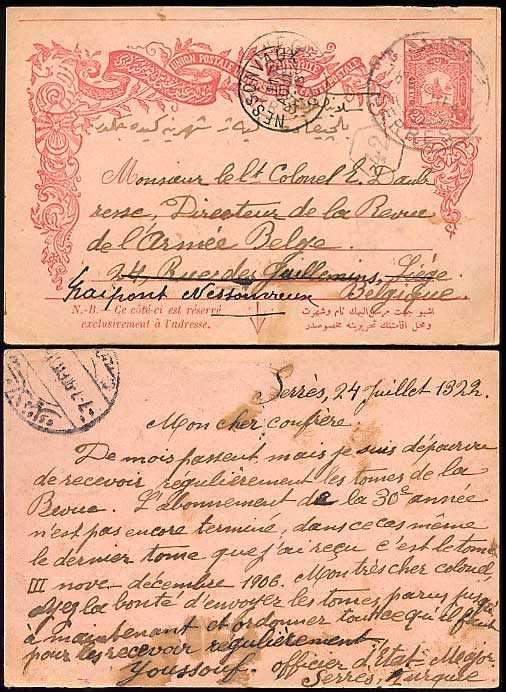 UNION POSTALE
CARTE POSTALE
NESSONVAUX
SERRES
20
342
Monsieur le Lt Colonel E. Daub
resse, Directeur de la Revue
de l'Armée Belge.
24, Rue des Guillemins, Liége.
Fraipont Nessonvaux Belgique.
N.-B. Ce côté-ci est réservé
exclusivement à l'adresse.
Serrès, 24 Juillet 1322.
Mon cher confrère.
De mois passent mais je suis dépourvu
de recevoir regulièrement les tomes de la
Revue. L'abonnement de la 30e année
n'est pas encore terminé, dans ce cas même
le dernier tome que j'ai reçu c'est le tome
III nove - décembre 1906. Mon très cher colonel,
ayez la bonté d'envoyer les tomes parus jusqu'
à maintenant et ordonner tout ce qu'il faut
pour les recevoir regulièrement.
Youssouf. officier d'Etat-Major.
Serrès, Turquie